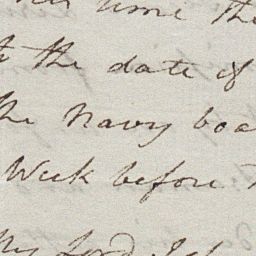 time the
the date of
the Navy boa
Week before
My Lord I